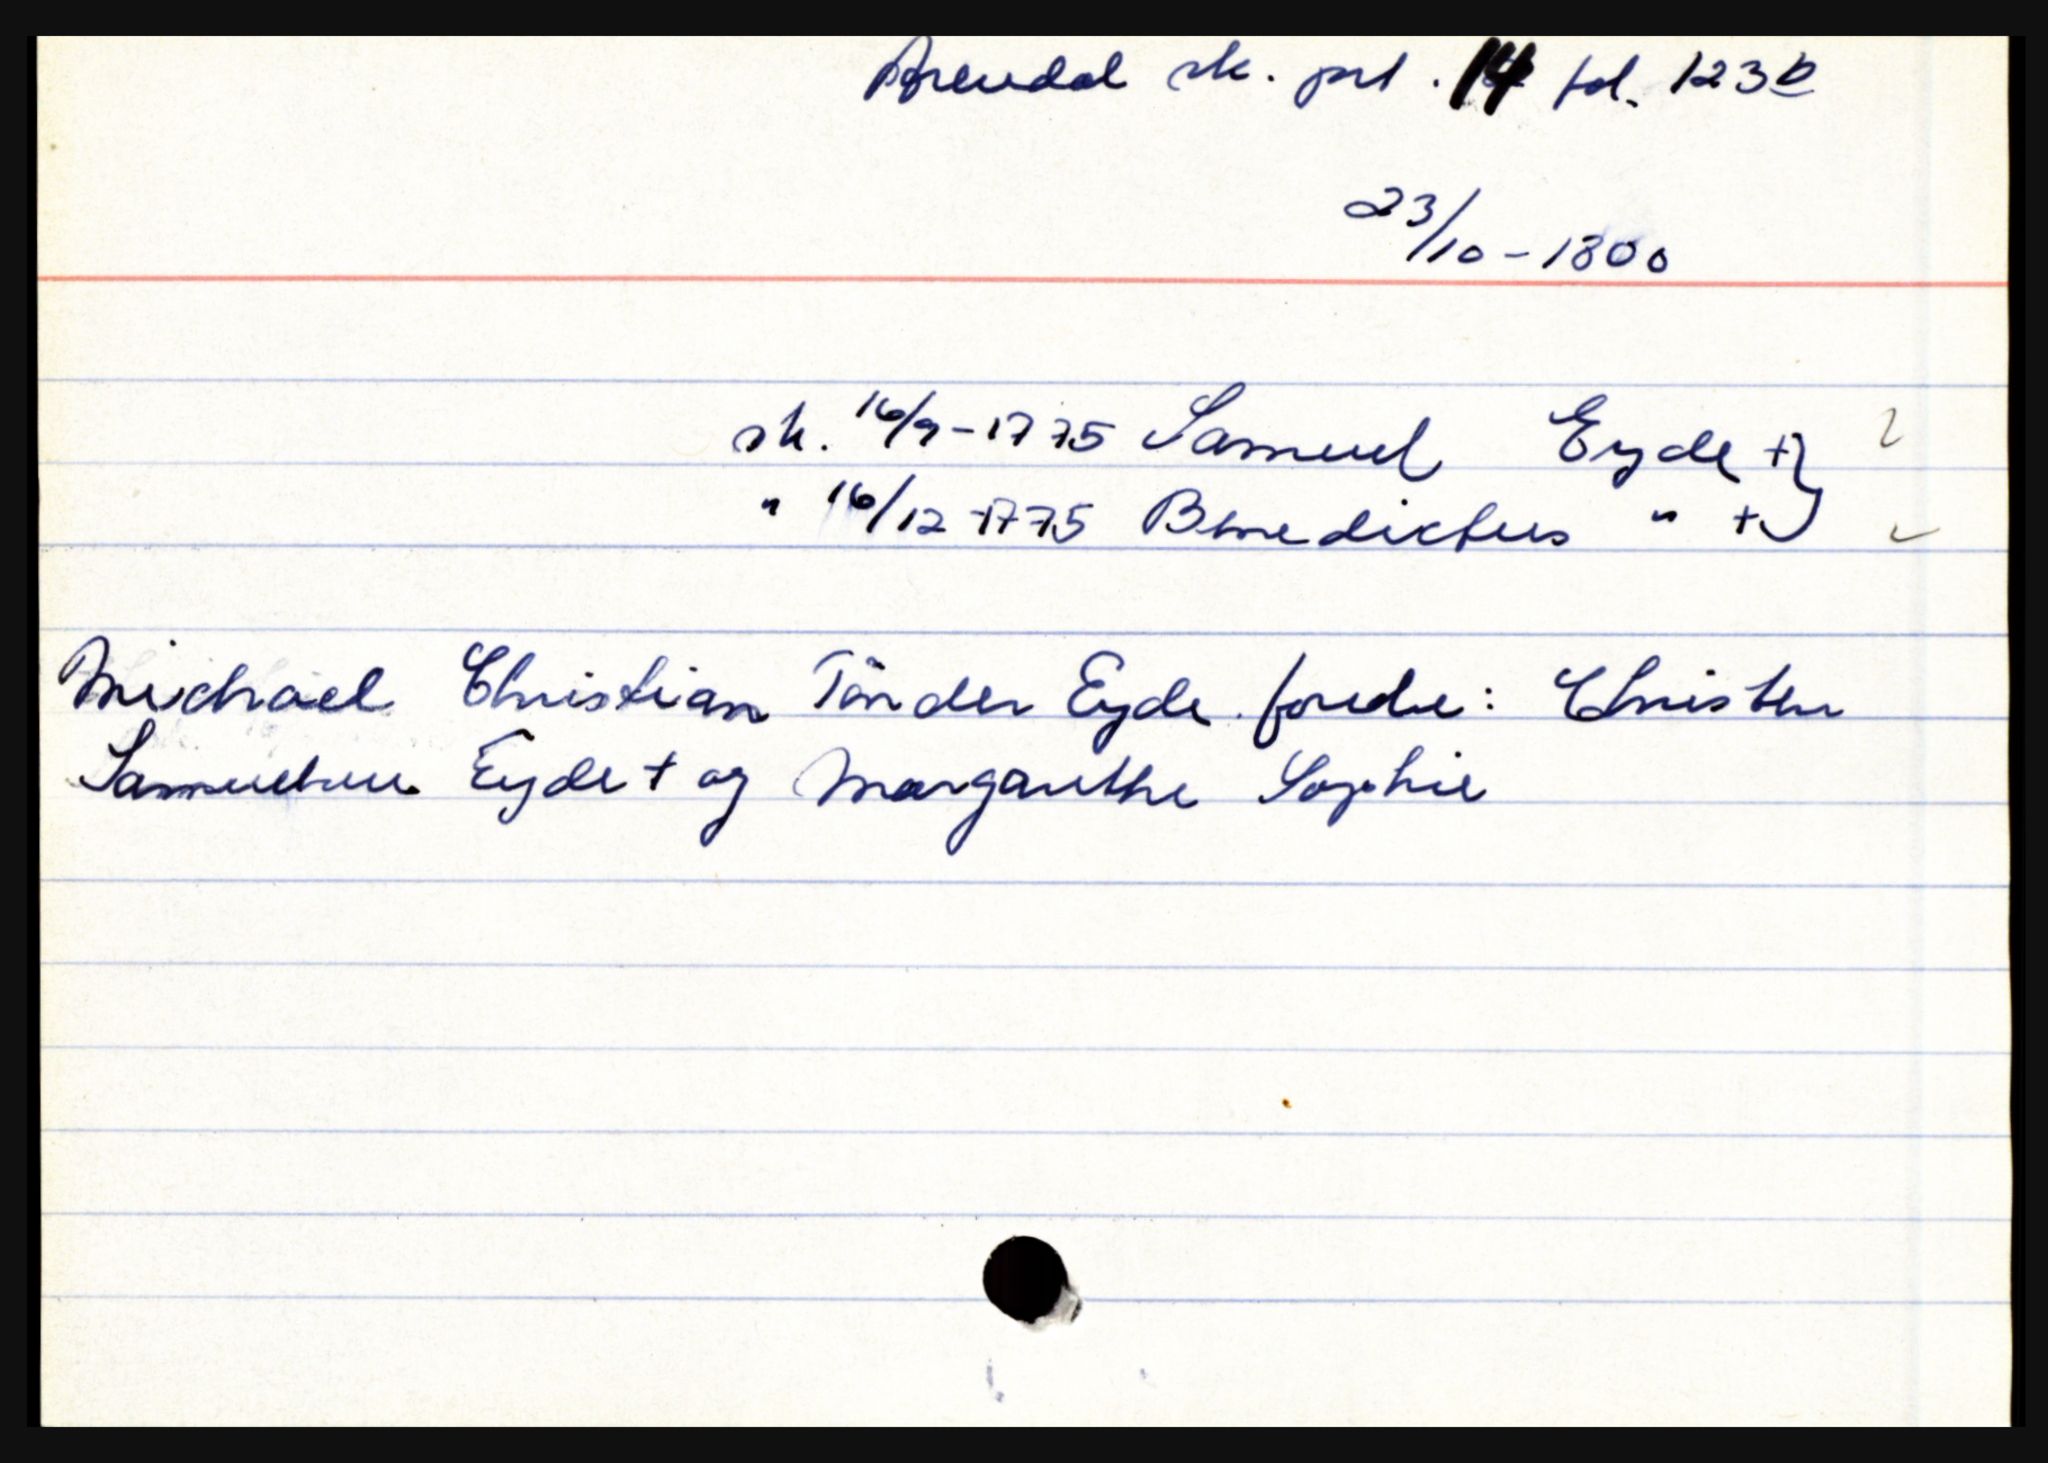 Arendal sk. prl. 14 fol. 123b
23/10-1800
sk. 16/9-1775 Samuel Eyde +}
" 16/12-1775 Benedictus " +}
Michael Christian Tönder Eyde foredre: Christen
Samuelsen Eyde + og Margarethe Sophie